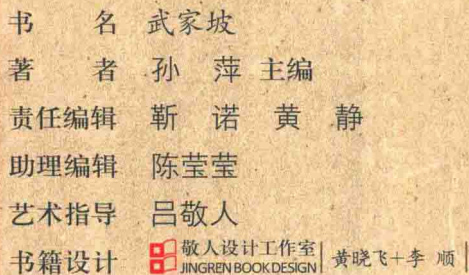 书 名 武家坡
著 者 孙 萍 主编
责任编辑 靳 诺 黄 静
助理编辑 陈莹莹
艺术指导 吕敬人
书籍设计 敬人设计工作室 JINGREN BOOK DESIGN 黄晓飞+李 顺